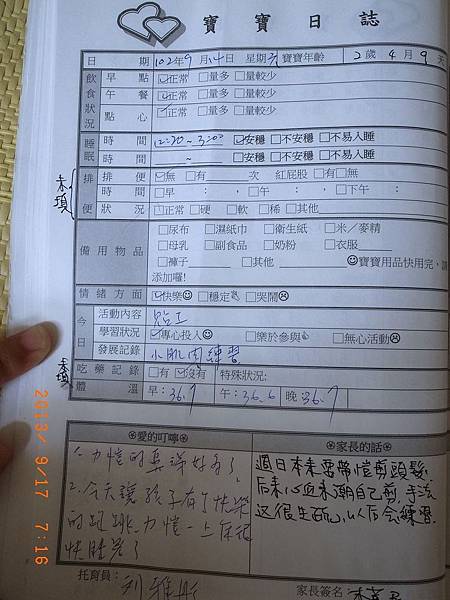 寶寶日誌
日期 102年9月14日 星期 寶寶年齡 2歲4月9天
飲食狀況 早點 ☑正常 □量多 □量較少
午餐 ☑正常 □量多 □量較少
點心 ☑正常 □量多 □量較少
睡眠 時間 12:30~3:00 ☑安穩 □不安穩 □不易入睡
時間 ~ □安穩 □不安穩 □不易入睡
排便 排便 ☑無 □有 次 紅屁股 □有 □無
時間 □早 : ,□午 : ,□下午 :
狀況 ☑正常 □硬 □軟 □稀 □其他
備用物品 □尿布 □濕紙巾 □衛生紙 □米/麥精
□母乳 □副食品 □奶粉 □衣服
□褲子 □其他 ☺寶寶用品快用完,請
添加囉!
情緒方面 ☑快樂☺ □穩定 □哭鬧☹
今日 活動內容 貼工
學習狀況 ☑專心投入 □樂於參與 □無心活動☹
發展記錄 小肌肉練習
吃藥記錄 □有 ☑沒有 特殊狀況:
體溫 早:36.7 午:36.6 晚:36.7
愛的叮嚀
1.力愷的鼻涕好多了
2.今天讓孩子有了快樂
的蹦跳,力愷一上床很
快睡著了
托育員:
家長的話
週日本來要帶愷剪頭髮,
后來心血來潮自己剪,手法
还很生疏,以后会練習.
家長簽名:
2013/9/17 7:16